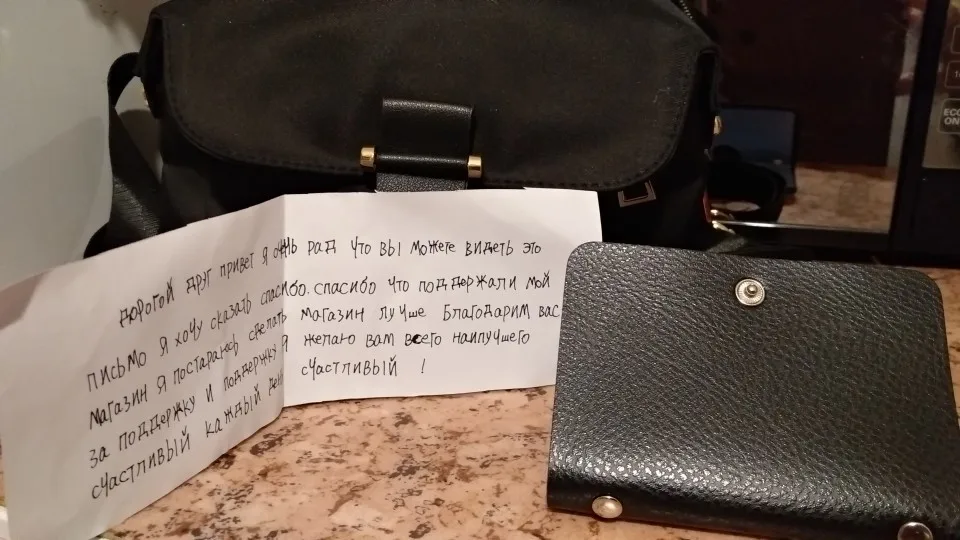 дорогой друг привет я очнь рад что вы можете видеть это
письмо я хочу сказать спасибо. спасибо что поддержали мой
магазин я постараюсь сделать магазин лучше Благодарим вас
за поддержку и поддержку я желаю вам всего наилучшего
счастливый каждый день счастливый !
ECO
ON